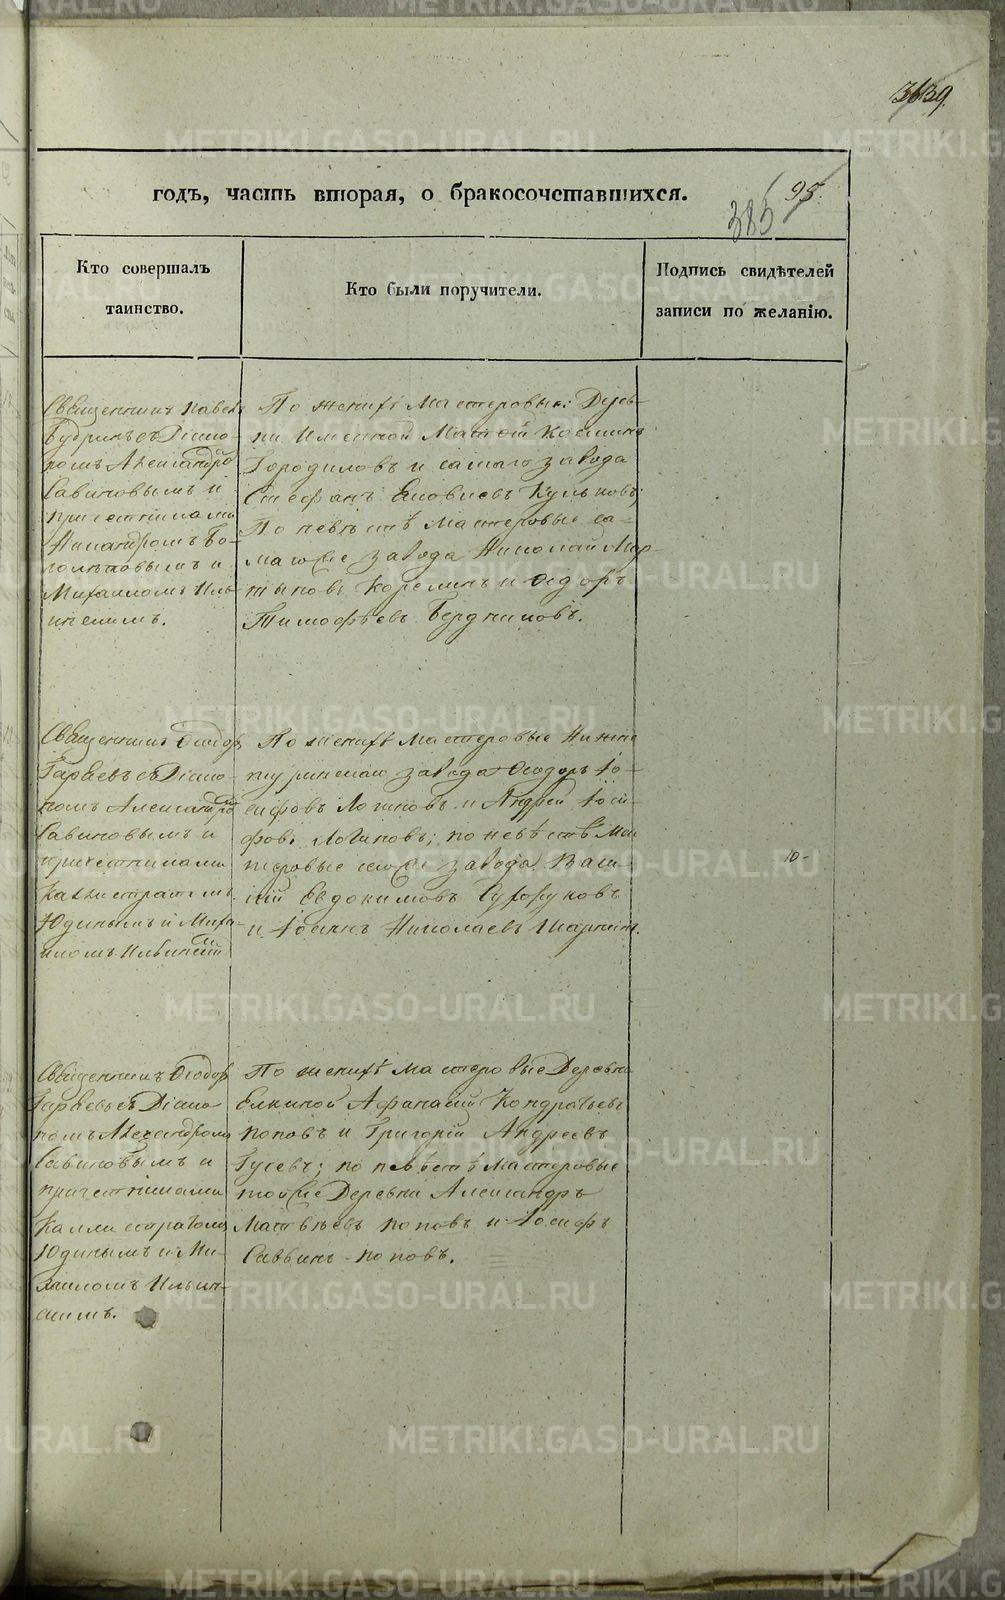 METRIKI.GASO-URAL.RU
годъ, часть вторая, о бракосочетавшихся.
95.
385
Кто совершалъ
таинство.
Кто были поручители.
Подпись свидѣтелей
записи по желанію.
Священникъ Павелъ
Будринъ съ Діако-
номъ Александромъ
Савиновымъ и
причетниками
Никандромъ Бо-
и
Михаиломъ Иль-
инскимъ.
По женихѣ Мастеровые: Дерев-
ни Именной Матѳей Косминъ
Городиловъ и самаго завода
Стефанъ Яковлевъ Кульковъ;
По невѣстѣ Мастеровые са-
маго же завода Николай Мар-
тыновъ Корелинъ и Ѳедоръ
Тимофѣевъ Бердниковъ.
Священникъ Ѳеодоръ
съ Діако-
номъ Александромъ
Савиновымъ и
причетниками
Каллистратомъ
Юдинымъ и Миха-
иломъ Ильинскимъ
По женихѣ Мастеровые Нижне
туринскаго завода Ѳеодоръ Іо-
сифовъ Логиновъ и Андрей Іоси-
фовъ Логиновъ; по невѣстѣ Мас-
теровые сего же завода Васи-
лій Евдокимовъ
и Іоаннъ Николаевъ
10-
Священникъ Ѳеодоръ
съ Діако-
номъ Александромъ
Савиновымъ и
причетниками
Каллистратомъ
Юдинымъ и Ми-
хаиломъ Ильин-
скимъ.
По женихѣ Мастеровые Деревни
Елкиной Афанасій Кондратьевъ
Поповъ и Григорій Андреевъ
Гусевъ; по невѣстѣ Мастеровые
той же Деревни Александръ
Матвѣевъ Поповъ и Іосифъ
Саввинъ Поповъ.